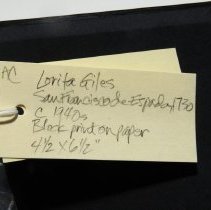 AC
Lorita Giles
San Francisco de Espada, 1730
C 1940s
Block print on paper
4 1/2 x 6 1/2"